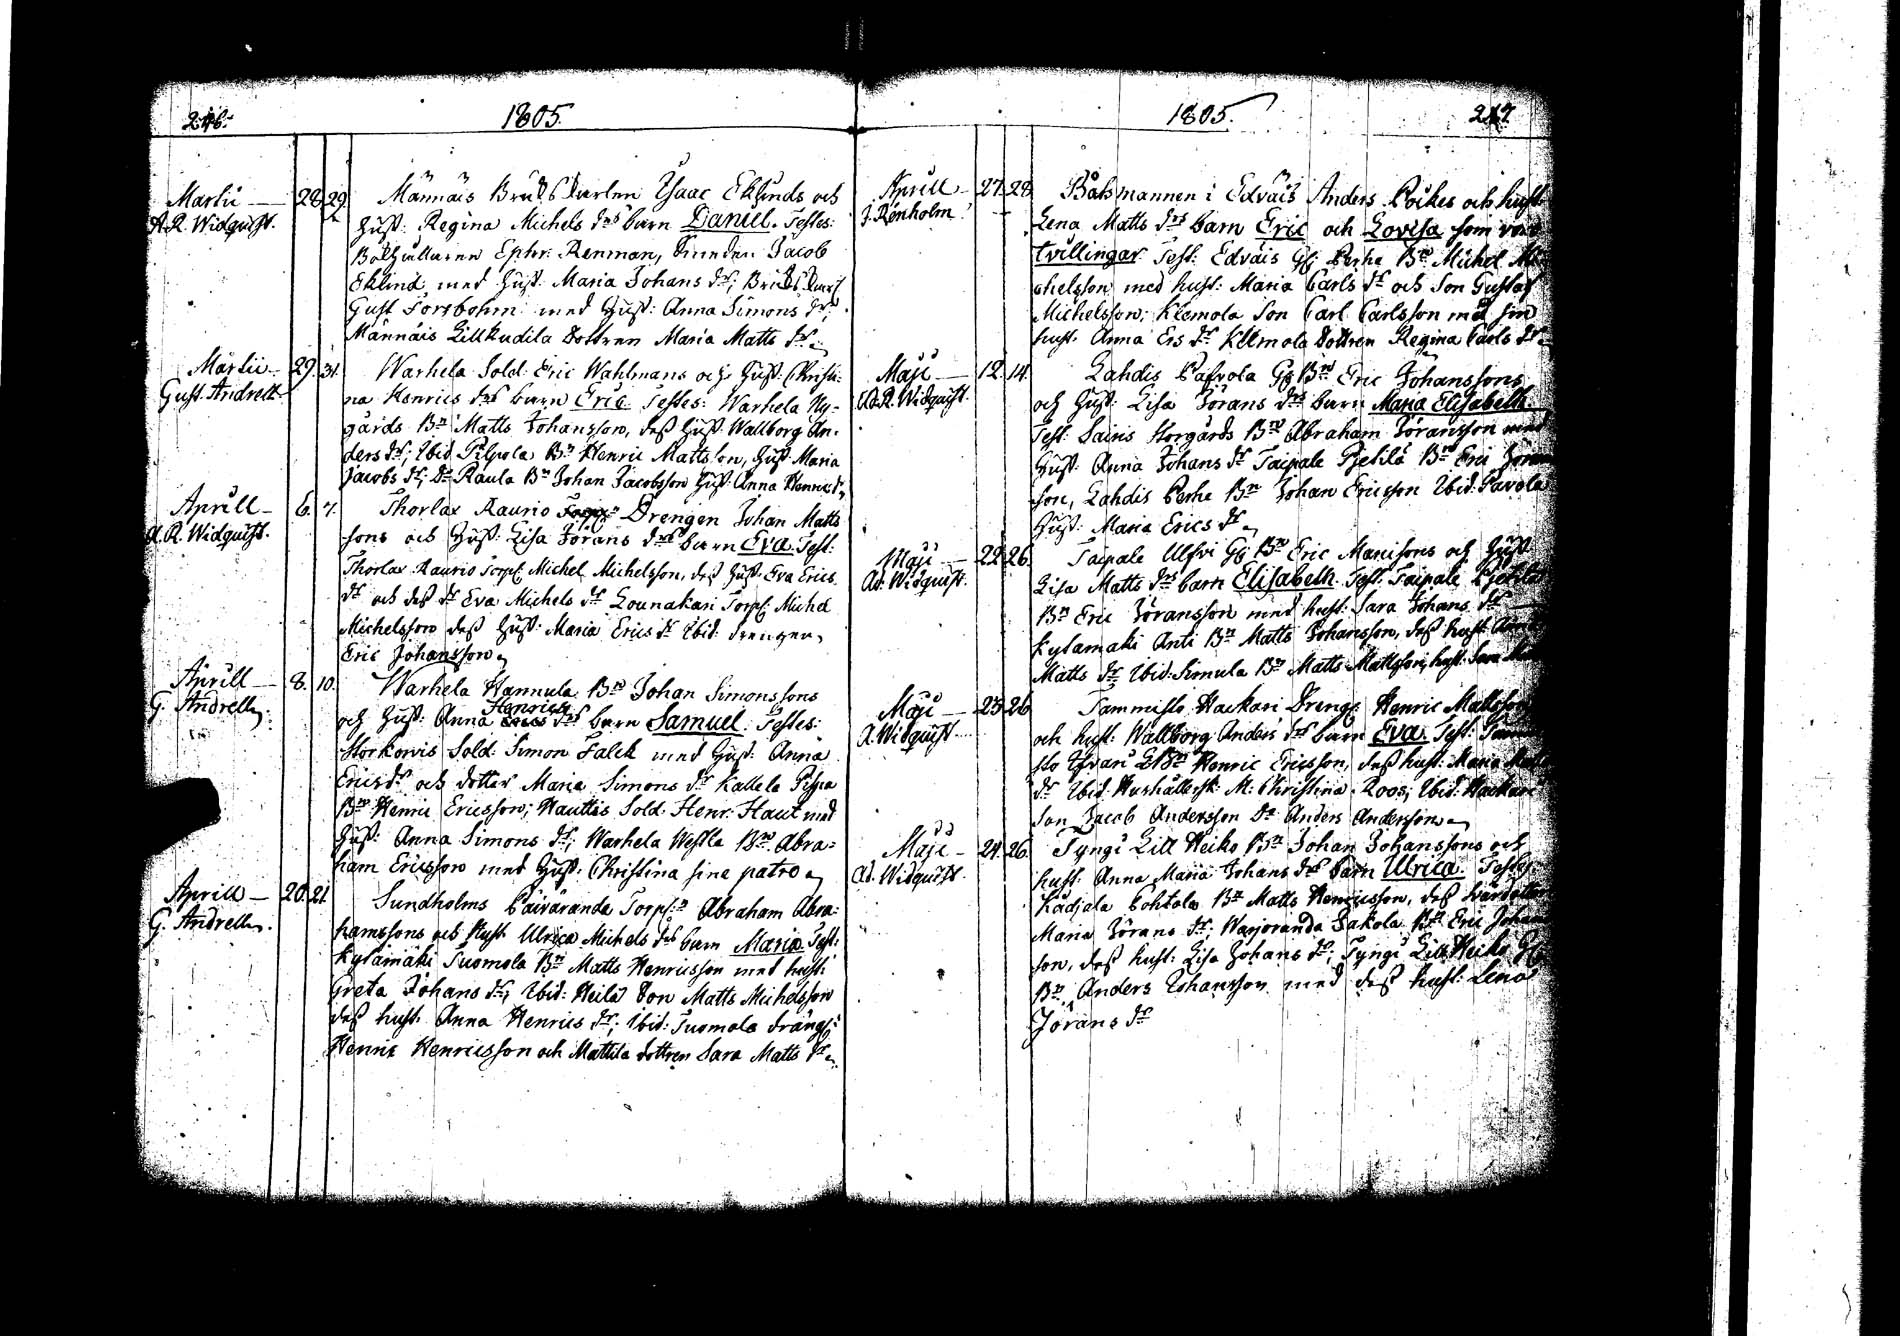 246.
1805.
Martii — 28. 29. Männäis Bruks Karlen Ysaac Eklunds och
A. R. Widquist. Hust: Regina Michels drs barn Daniel. Testes:
Renman, Jacob
Eklund med Hust: Maria Johans dr; Bruks
Gust Forsbohm med Hust: Anna Simons dr;
Männäis Lillkudila dottren Maria Matts dr
Martii — 29. 31. Warhela Sold: Eric Wahlmans och Hust: Christi-
Gust. Andrell na Henrics drs barn Eric Testes: Warhela Ny-
gårds Bn Matts Johansson, dess Hust: Wallborg An-
ders dr; Ibid Pilpola Bn Henric Mattsson, Hust: Maria
Jacobs dr; Do Raula Bn Johan Jacobsson Hust: Anna Henric dr
Aprill — 6. 7. Thorlax Raurio Drengen Johan Matts
A. R. Widquist. sons och Hust: Lisa Jörans drs barn Eva Test:
Thorlax Raurio Torp: Michel Michelsson, dess Hust: Eva Erics
dr och dess dr Eva Michels dr Lounakari Torp: Michel
Michelsson dess Hust: Maria Erics dr Ibid: drengen
Eric Johansson
Aprill — 8. 10. Warhela Hannula Bn Johan Simonssons
G. Andrell och Hust: Anna Henrics drs barn Samuel Testes:
Storkovis Sold: Simon Falck med Hust: Anna
Erics dr och dotter Maria Simons dr Kallela Pispa
Bn Henric Ericsson; Hauttis Sold: Henr: Haut med
Hust: Anna Simons dr; Warhela Westla Bn Abra-
ham Ericsson med Hust: Christina sine patro
Aprill — 20. 21. Sundholms Päiväranda Torp: Abraham Abra-
G. Andrell. hamssons och Hust Ulrica Michels drs barn Maria Test:
Kylämäki Tuomola Bn Matts Henricsson med hust:
Greta Johans dr; Ibid: Heilä Son Matts Michelsson
dess hust: Anna Henrics dr; Ibid: Tuomola dräng:
Henric Henricsson och Mattila dottren Sara Matts dr
1805.
247
Aprill — 27. 28. Båtsmannen i Edväis Anders Pöikes och hust
J. Renholm. Lena Matts drs barn Eric och Lovisa som voro
tvillingar Test: Edväis Perhe Bn Michel Mi-
chelsson med hust: Maria Carls dr och Son Gustaf
Michelsson; Klemola Son Carl Carlsson med sin
hust: Anna Ers dr Klemola dottren Regina Carls dr
Maji — 12. 14. Lahdis Pafvola Bn Eric Johanssons
Ad. R. Widquist. och Hust: Lisa Jörans drs barn Maria Elisabeth.
Test: Sairis Storgårds Bn Abraham Jöransson med
Hust: Anna Johans dr Taipale Pjetilä Bn Eric Jörans
son, Lahdis Perhe Bn Johan Ericsson Ibid: Pavola
Hust: Maria Erics dr
Maji — 22. 26. Taipale Ulfvi Bn Eric Manssons och Hust
Ad. Widquist. Lisa Matts drs barn Elisabeth. Test: Taipale Pjetilä
Bn Eric Jöransson med hust: Sara Johans dr —
Kylämäki Anti Bn Matts Johansson, dess hust
Matts dr Ibid: Simula Bn Matts Mattsson, hust: Sara
Maji — 23. 26. Tammisto Haekari Dreng: Henric Mattsson
A. Widquist. och hust: Wallborg Anders drs barn Eva Test: Tammi-
sto Yfvari Bn Henric Ericsson, dess hust: Maria
dr Ibid: Hushållersk: M: Christina Roos; Ibid: Haekari
Son Jacob Andersson Do Anders Andersson
Maji — 24. 26. Tyngi Lill Heiko Bn Johan Johanssons och
Ad. Widquist. hust: Anna Maria Johans drs barn Ulrica. Testes:
Kadjala Pohtola Bn Matts Henricsson, dess
Maria Jörans dr; Warjoranda Jakola Bn Eric Johans
son, dess hust: Lisa Johans dr; Tyngi Lill Heiko
Bn Anders Johansson med dess hust: Lena
Jörans dr